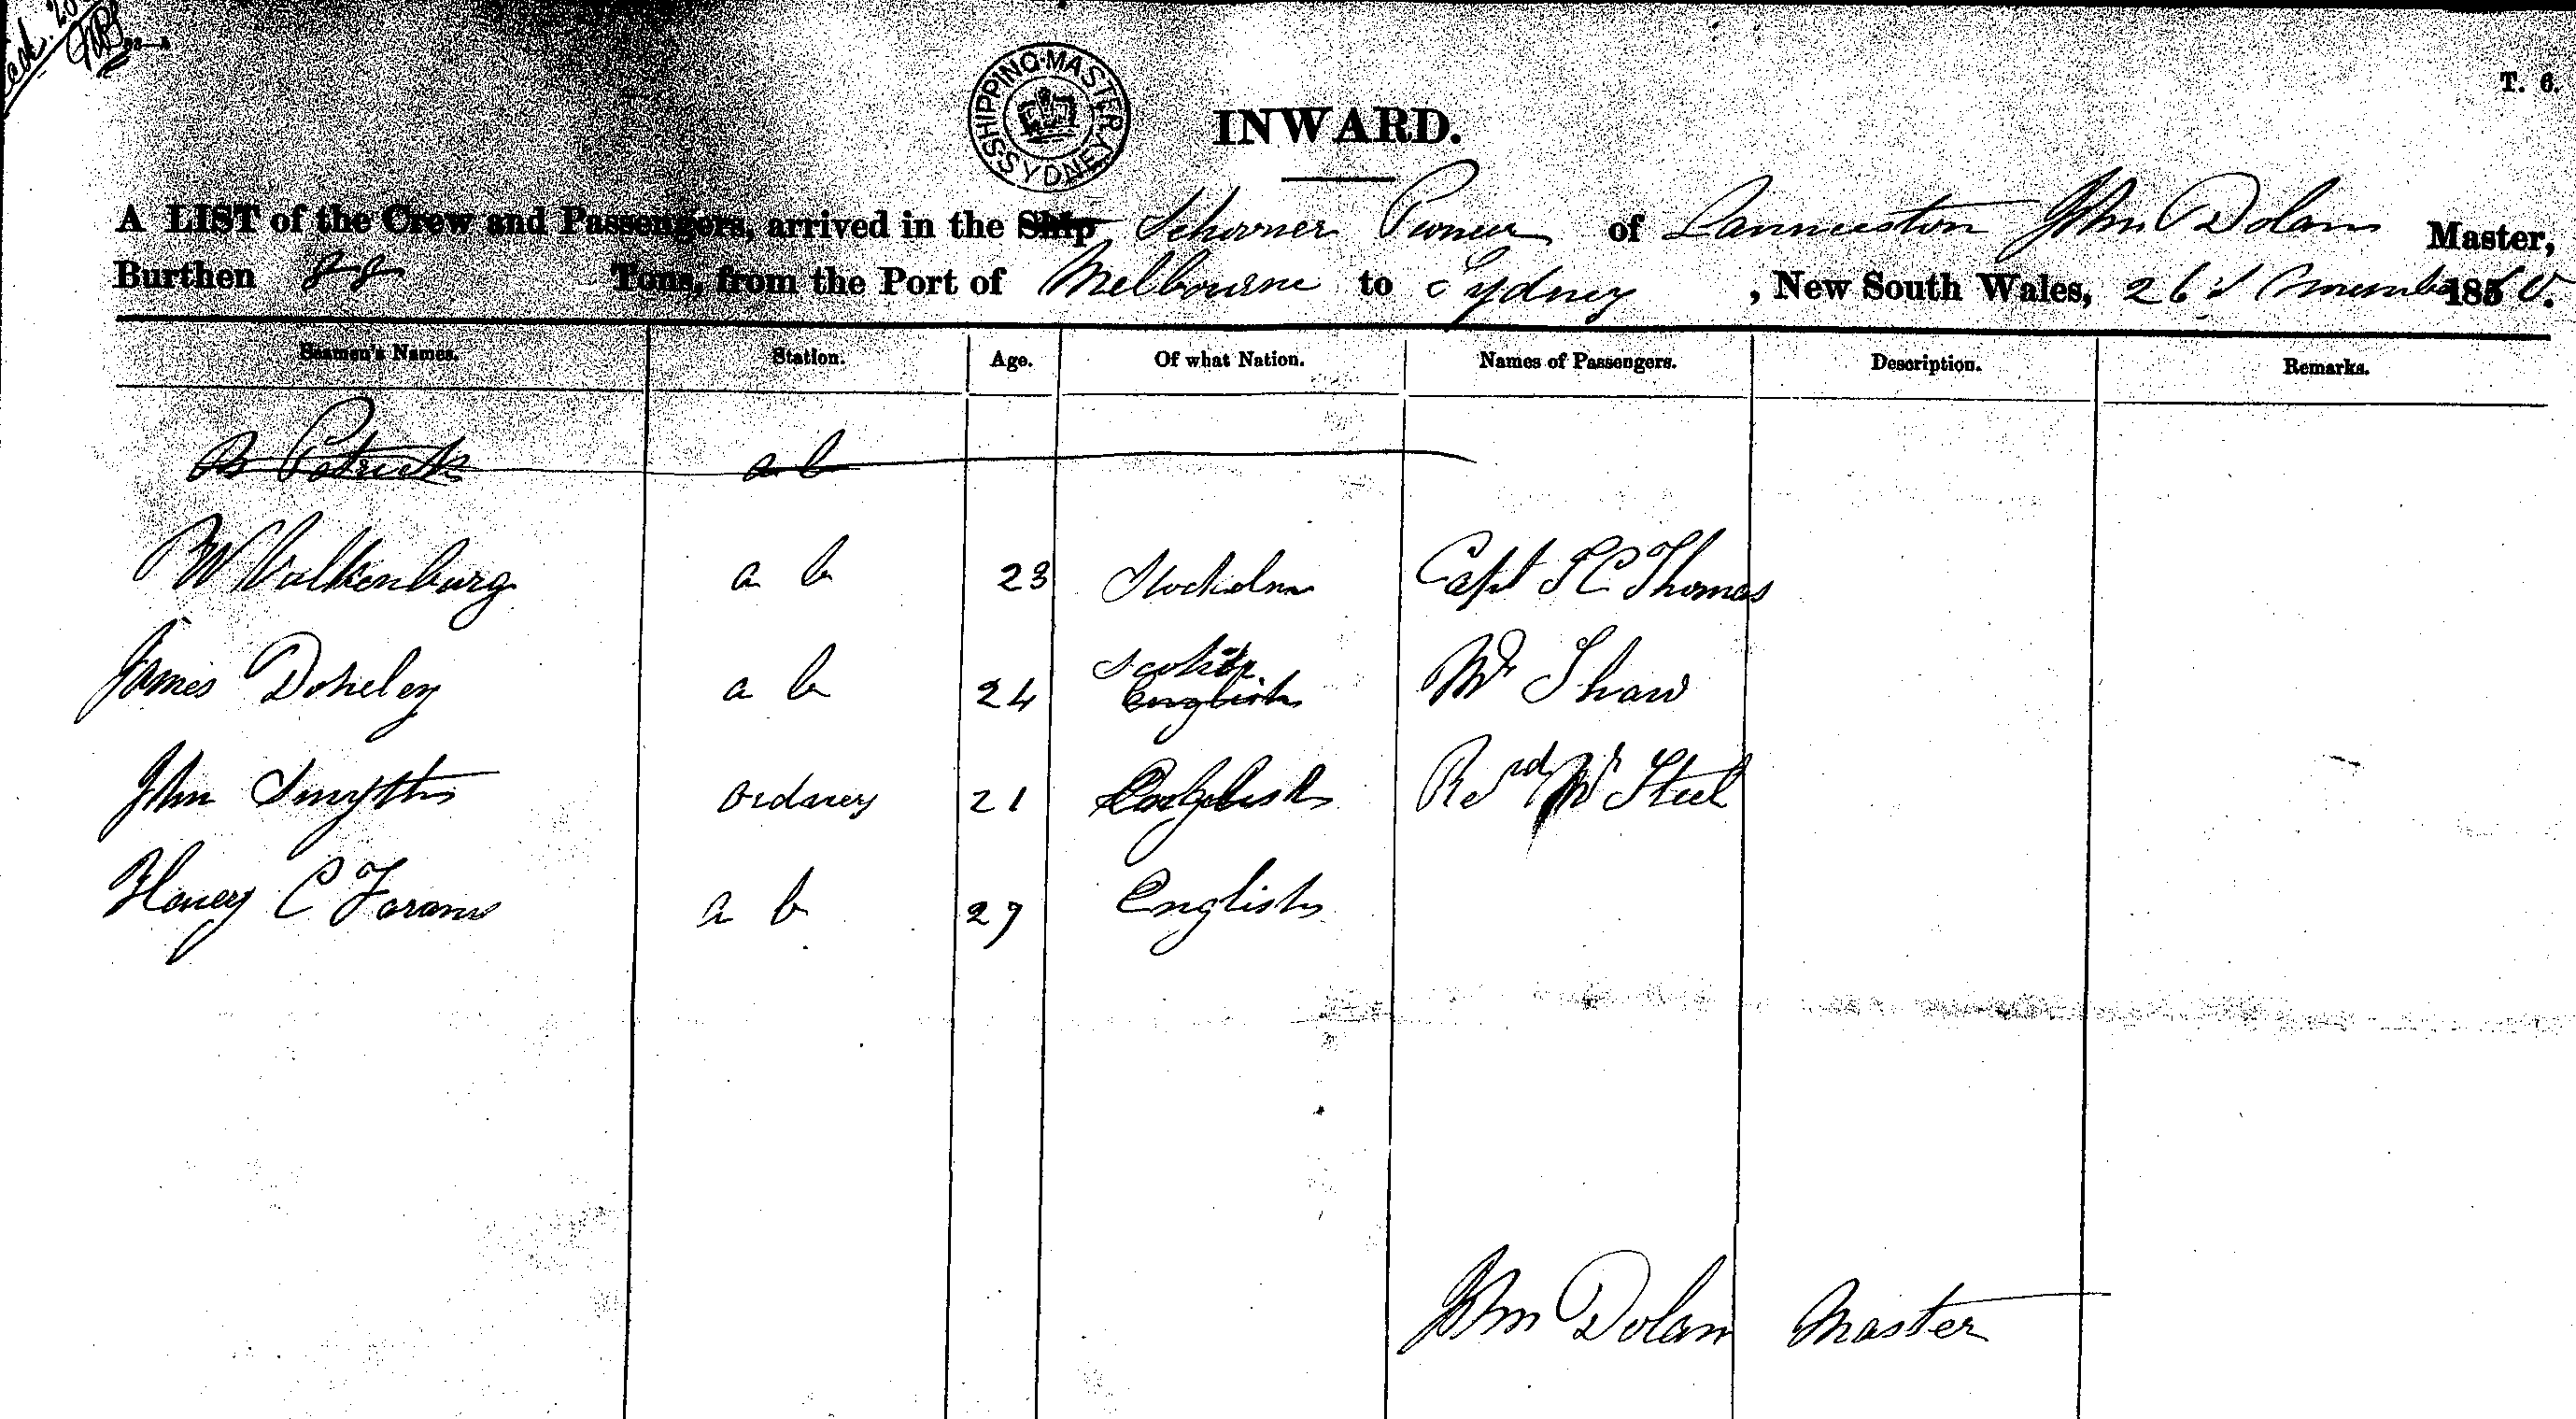 T. 6.
SHIPPING MASTER SYDNEY
INWARD.
A LIST of the Crew and Passengers, arrived in the Ship Schooner Pioneer of Launceston John Dolan Master,
Burthen 88 Tons, from the Port of Melbourne to Sydney , New South Wales, 26 November 1860.
Seamen's Names. Station. Age. Of what Nation. Names of Passengers. Description. Remarks.
Patrick a b
Valkenburg a b 23 Stockolm Capt S C Thomas
James Doheley a b 24 English Mr Shaw
John Smyth ordnrey 21 English Revd Mr Steel
Henry C a b 29 English
John Dolan Master